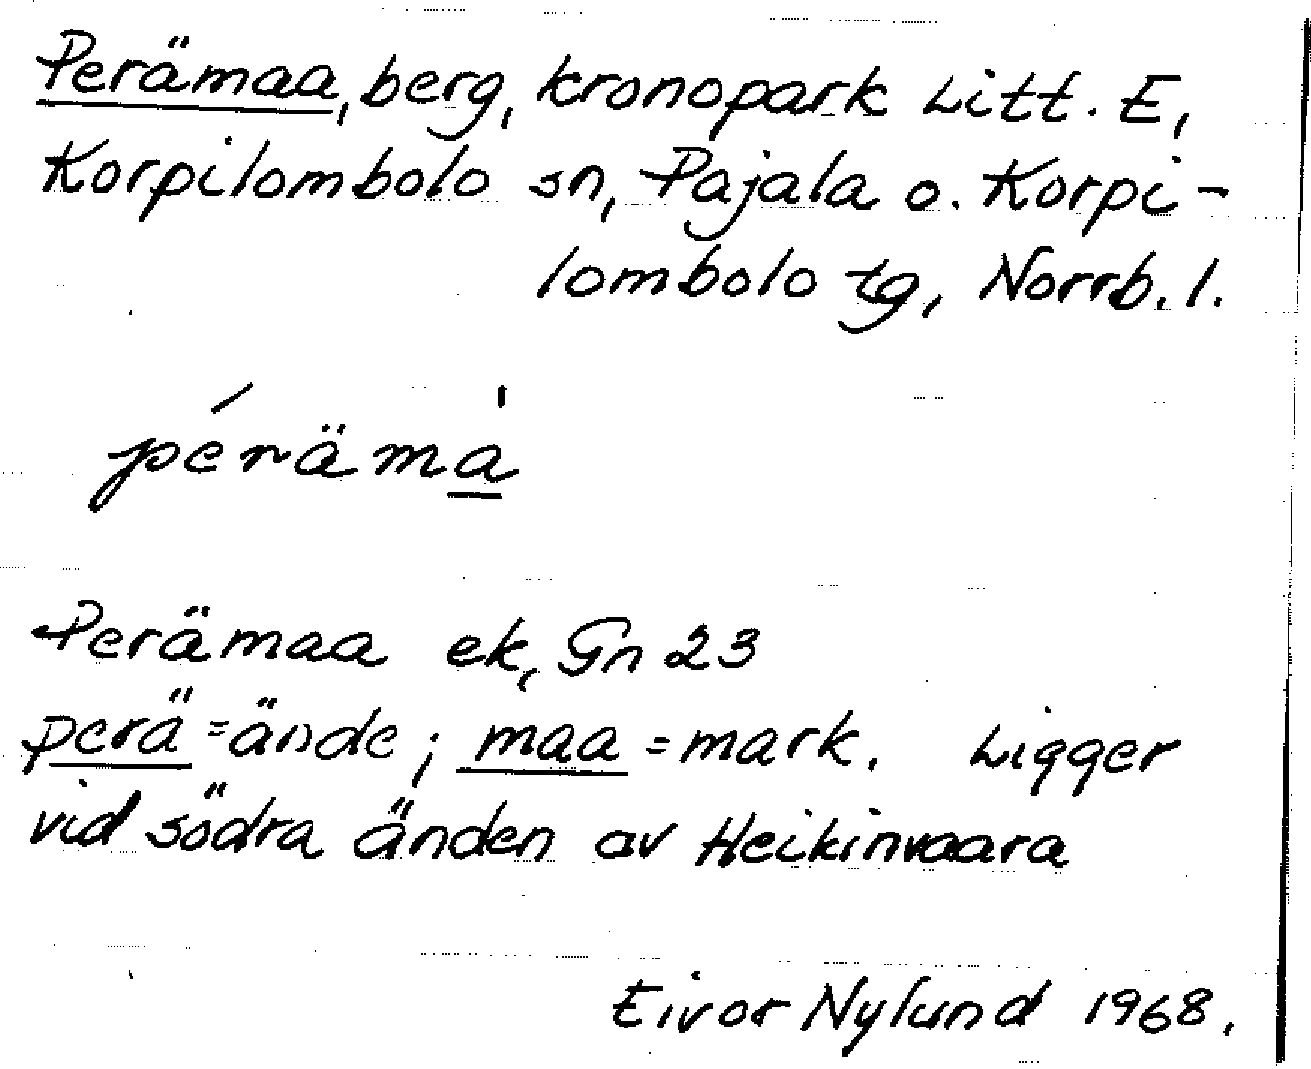 Perämaa, berg, kronopark Litt. E,
Korpilombolo sn, Pajala o. Korpi-
lombolo tg, Norrb. l.
péräma̱̍
Perämaa ek, Gn 23
perä = ände; maa = mark. Ligger
vid södra änden av Heikinvaara
Eivor Nylund 1968.